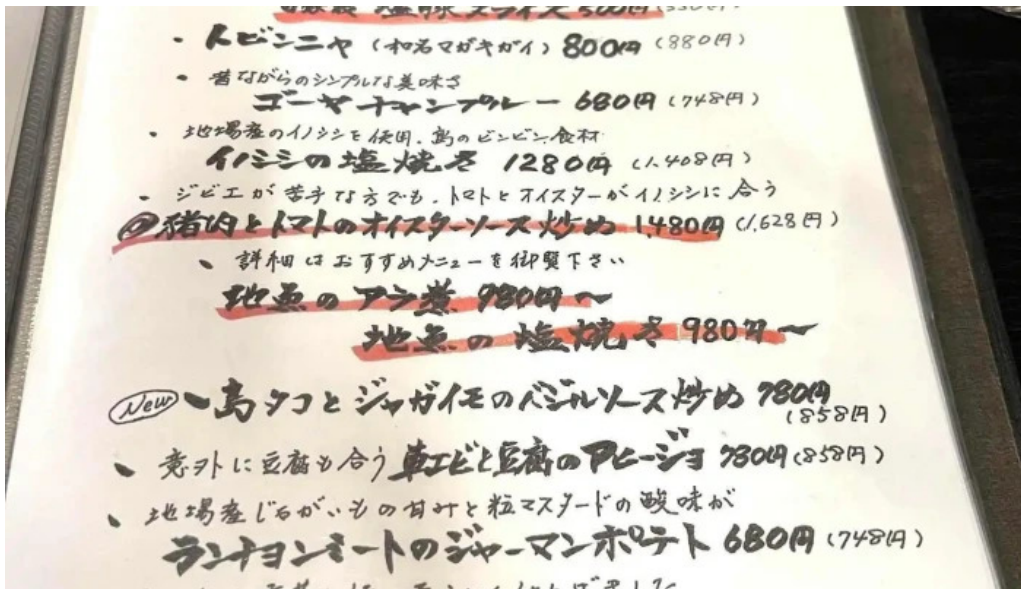 塩豚スライス 500円 (550円)
・トビンニャ (和名マガキガイ) 800円 (880円)
・昔ながらのシンプルな美味さ
ゴーヤチャンプルー 680円 (748円)
・地場産のイノシシを使用、島のビンビン食材
イノシシの塩焼き 1280円 (1,408円)
・ジビエが苦手な方でも、トマトとオイスターがイノシシに合う
猪肉とトマトのオイスターソース炒め 1,480円 (1,628円)
・詳細はおすすめメニューを御覧下さい
地魚のアラ煮 980円〜
地魚の塩焼き 980円〜
New 島タコとジャガイモのバジルソース炒め 780円
(858円)
意外に豆腐も合う 車エビと豆腐のアヒージョ 780円 (858円)
地場産じゃがいもの甘みと粒マスタードの酸味が
ランチョンミートのジャーマンポテト 680円 (748円)